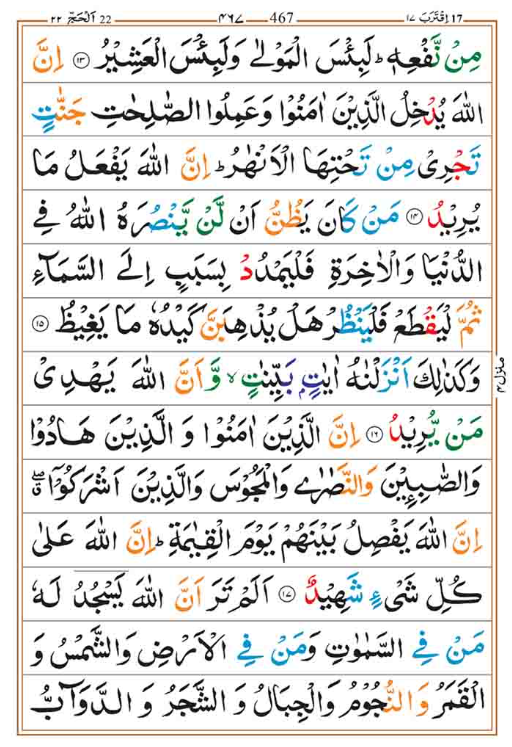 ١٧ اِقْتَرَبَ 17 ٤٦٧ 467 اَلْحَجّ ٢٢ 22
مِنْ نَّفْعِهٖؕ لَبِئْسَ الْمَوْلٰى وَلَبِئْسَ الْعَشِيْرُ ۝١٣ اِنَّ
اللّٰهَ يُدْخِلُ الَّذِيْنَ اٰمَنُوْا وَعَمِلُوا الصّٰلِحٰتِ جَنّٰتٍ
تَجْرِىْ مِنْ تَحْتِهَا الْاَنْهٰرُؕ اِنَّ اللّٰهَ يَفْعَلُ مَا
يُرِيْدُ ۝١٤ مَنْ كَانَ يَظُنُّ اَنْ لَّنْ يَّنْصُرَهُ اللّٰهُ فِى
الدُّنْيَا وَالْاٰخِرَةِ فَلْيَمْدُدْ بِسَبَبٍ اِلَى السَّمَآءِ
ثُمَّ لْيَقْطَعْ فَلْيَنْظُرْ هَلْ يُذْهِبَنَّ كَيْدُهٗ مَا يَغِيْظُ ۝١٥
وَكَذٰلِكَ اَنْزَلْنٰهُ اٰيٰتٍۭ بَيِّنٰتٍۙ وَّاَنَّ اللّٰهَ يَهْدِىْ
مَنْ يُّرِيْدُ ۝١٦ اِنَّ الَّذِيْنَ اٰمَنُوْا وَ الَّذِيْنَ هَادُوْا
وَالصّٰبِـِٕيْنَ وَالنَّصٰرٰى وَالْمَجُوْسَ وَالَّذِيْنَ اَشْرَكُوْۤا ۖق
اِنَّ اللّٰهَ يَفْصِلُ بَيْنَهُمْ يَوْمَ الْقِيٰمَةِؕ اِنَّ اللّٰهَ عَلٰى
كُلِّ شَىْءٍ شَهِيْدٌ ۝١٧ اَلَمْ تَرَ اَنَّ اللّٰهَ يَسْجُدُ لَهٗ
مَنْ فِى السَّمٰوٰتِ وَمَنْ فِى الْاَرْضِ وَالشَّمْسُ وَ
الْقَمَرُ وَ النُّجُوْمُ وَالْجِبَالُ وَ الشَّجَرُ وَ الدَّوَآبُّ
منزل ٤